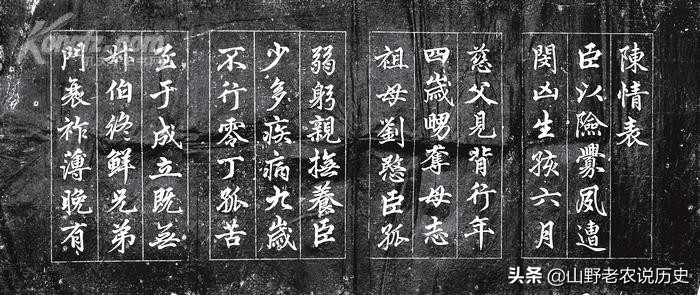 陳情表
臣以險釁夙遭
閔凶生孩六月
慈父見背行年
四歲舅奪母志
祖母劉愍臣孤
弱躬親撫養臣
少多疾病九歲
不行零丁孤苦
至于成立既無
叔伯終鮮兄弟
門衰祚薄晚有
头条 @山野老农说历史